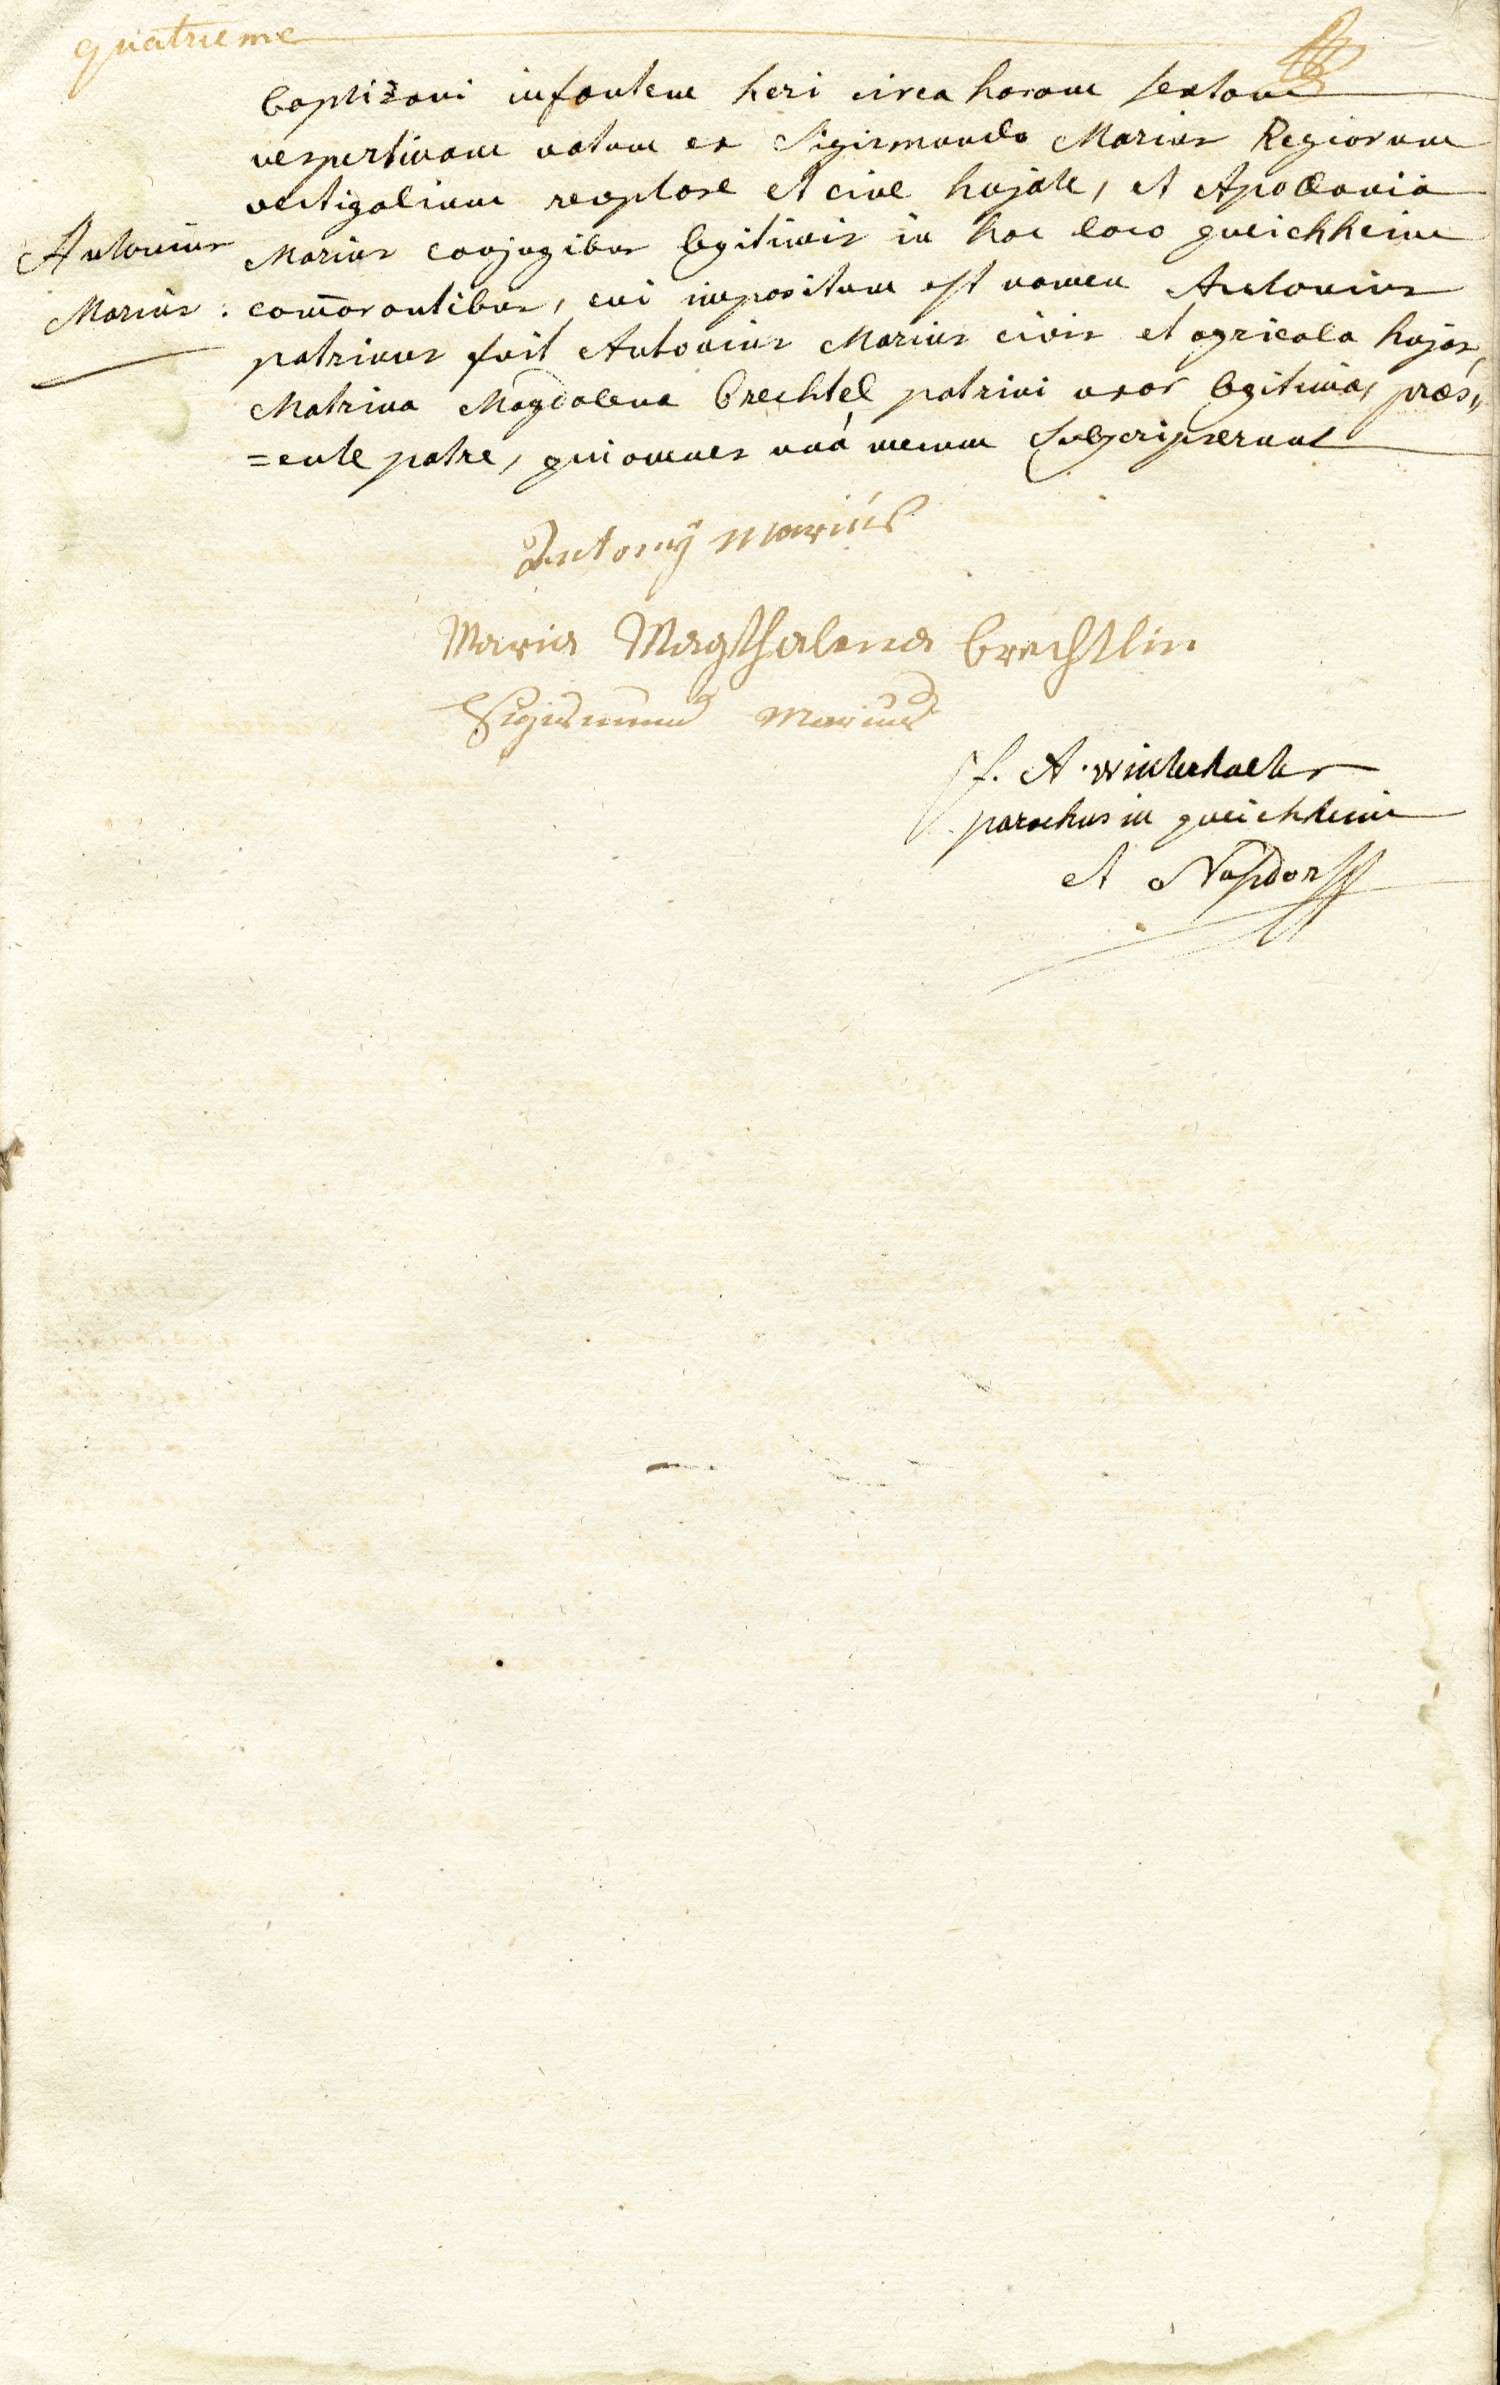 quatrieme
baptizavi infantem heri circa horam sextam
vespertinam natum ex Sigismundo Marius Regiorum
vectigalium receptore et cive hujate, et Apollonia
Antonius
Marius :
Marius conjugibus legitimis in hoc loco queichheim
com̄orantibus, cui impositum est nomen Antonius
patrinus fuit Antonius Marius civis et agricola hujas,
Matrina Magdalena Brechtel patrini uxor legitima, præs„
=ente patre, qui omnes unà mecum subscripserunt
Antonÿ Mariús
Maria Magthalena brechtlin
Sigismund Marius
f. A. winterhalter
parochus in queichheim
et Nusdorff